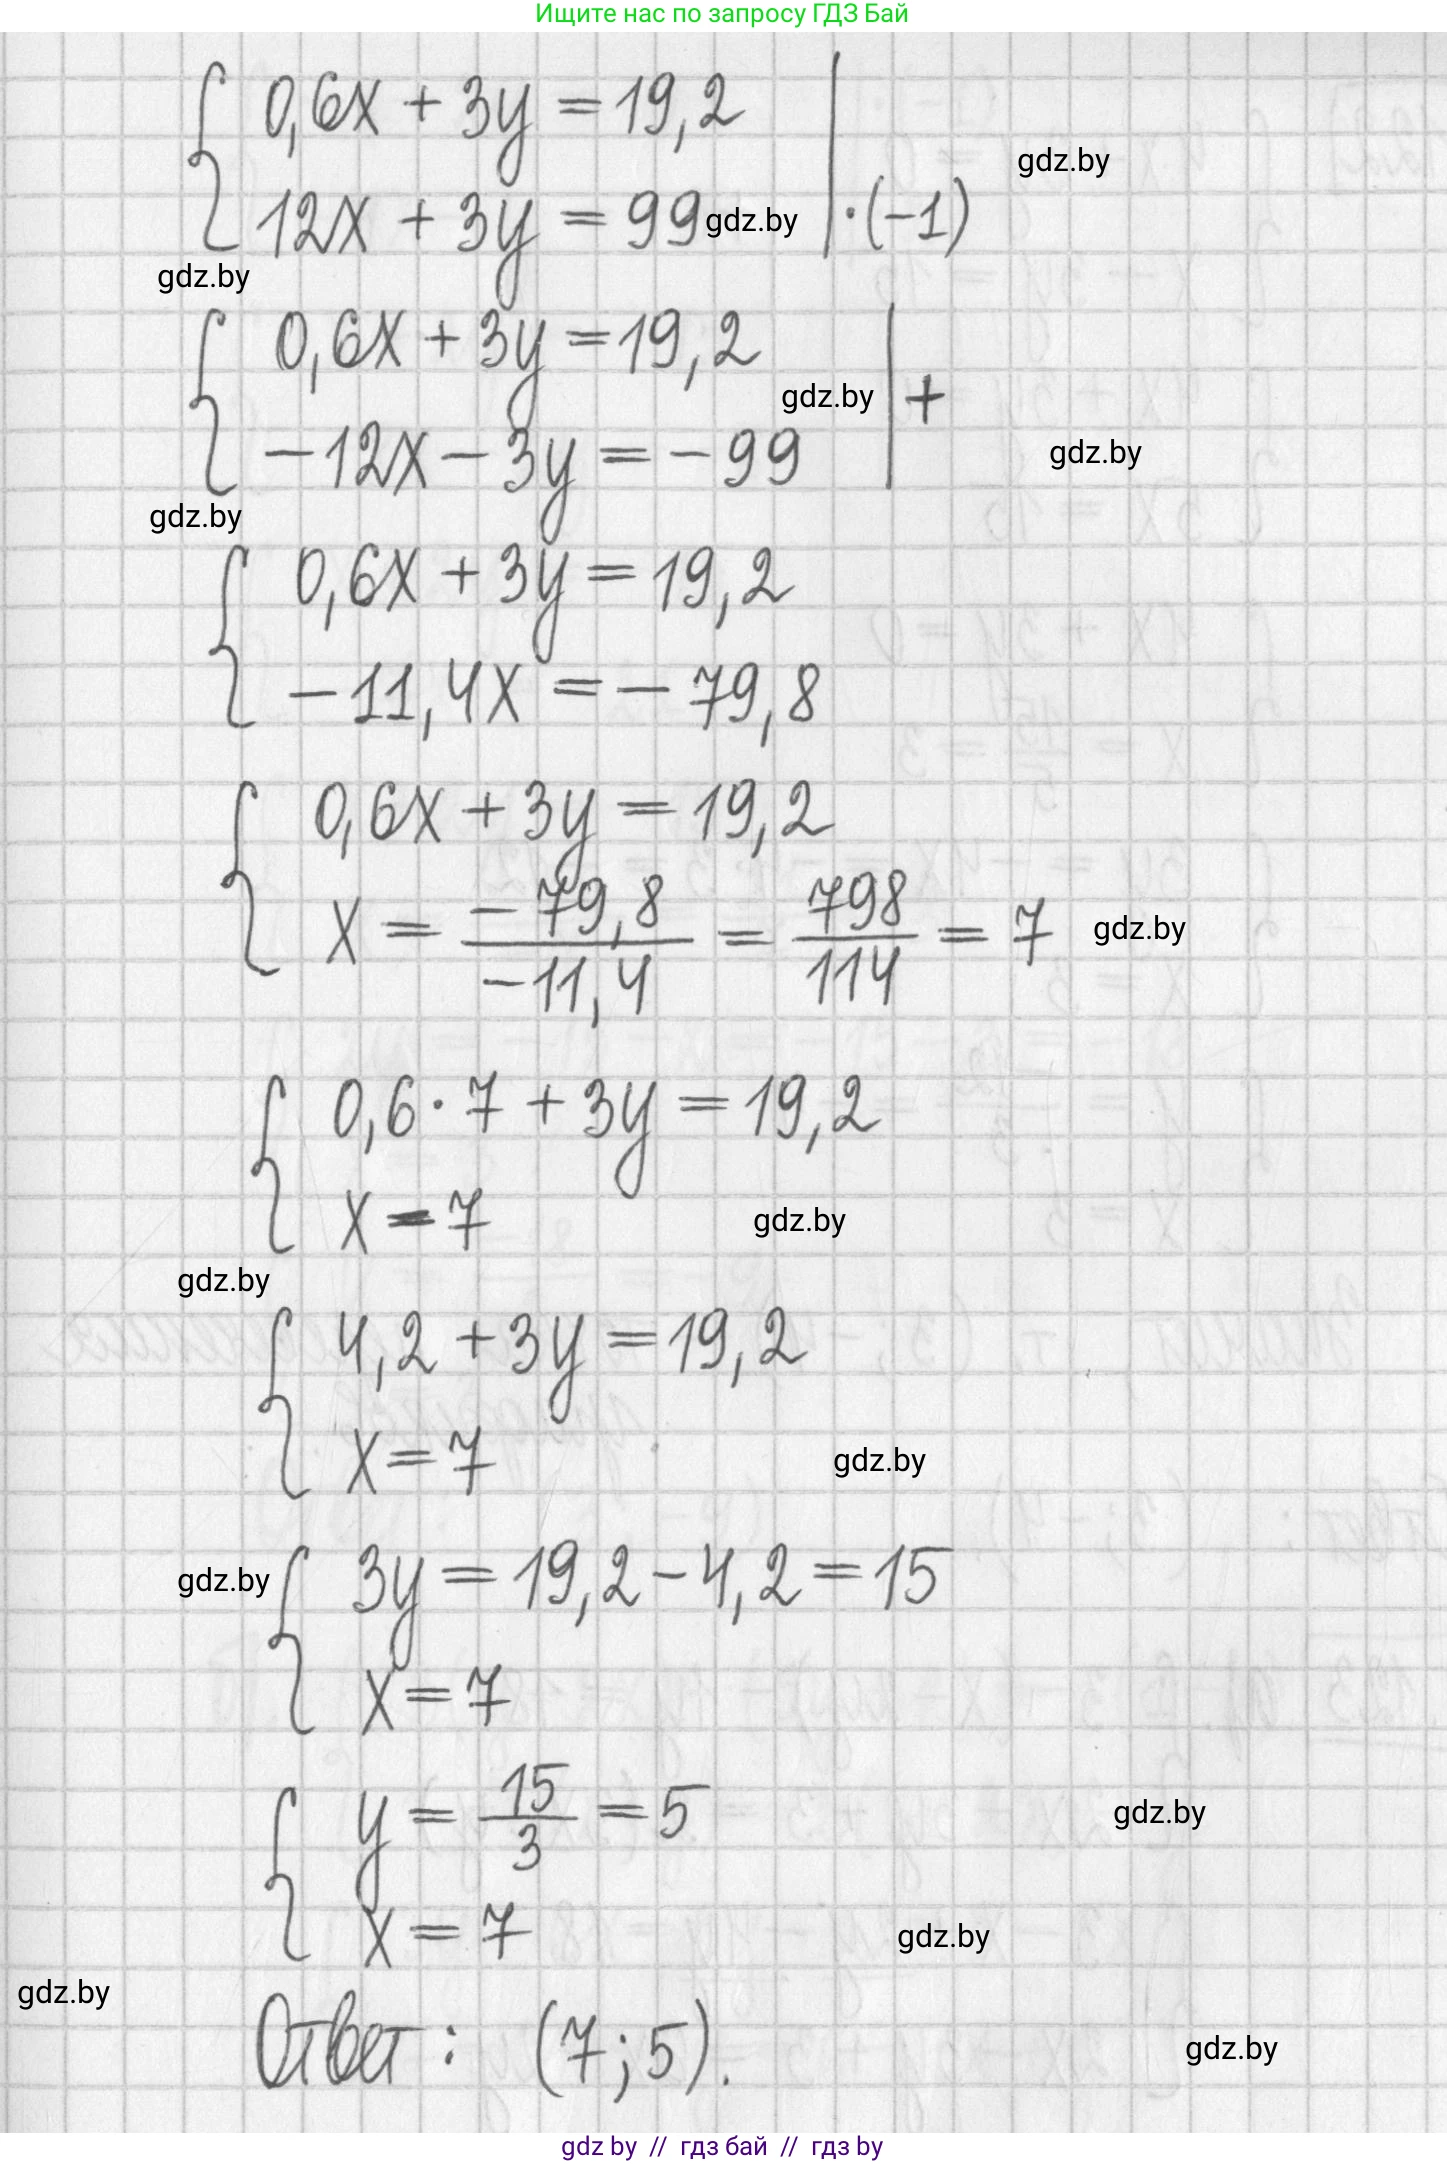 Ищите нас по запросу ГДЗ Бай
0,6x + 3y = 19,2
gdz.by
12x + 3y = 99 gdz.by | ·(-1)
gdz.by
0,6x + 3y = 19,2
gdz.by | +
-12x - 3y = -99 gdz.by
gdz.by
0,6x + 3y = 19,2
-11,4x = -79,8
0,6x + 3y = 19,2
x = -79,8/-11,4 = 798/114 = 7 gdz.by
0,6·7 + 3y = 19,2
x = 7 gdz.by
gdz.by
4,2 + 3y = 19,2
x = 7 gdz.by
gdz.by 3y = 19,2 - 4,2 = 15
x = 7
y = 15/3 = 5 gdz.by
x = 7 gdz.by
gdz.by
Ответ: (7; 5). gdz.by
gdz by // гдз бай // гдз by